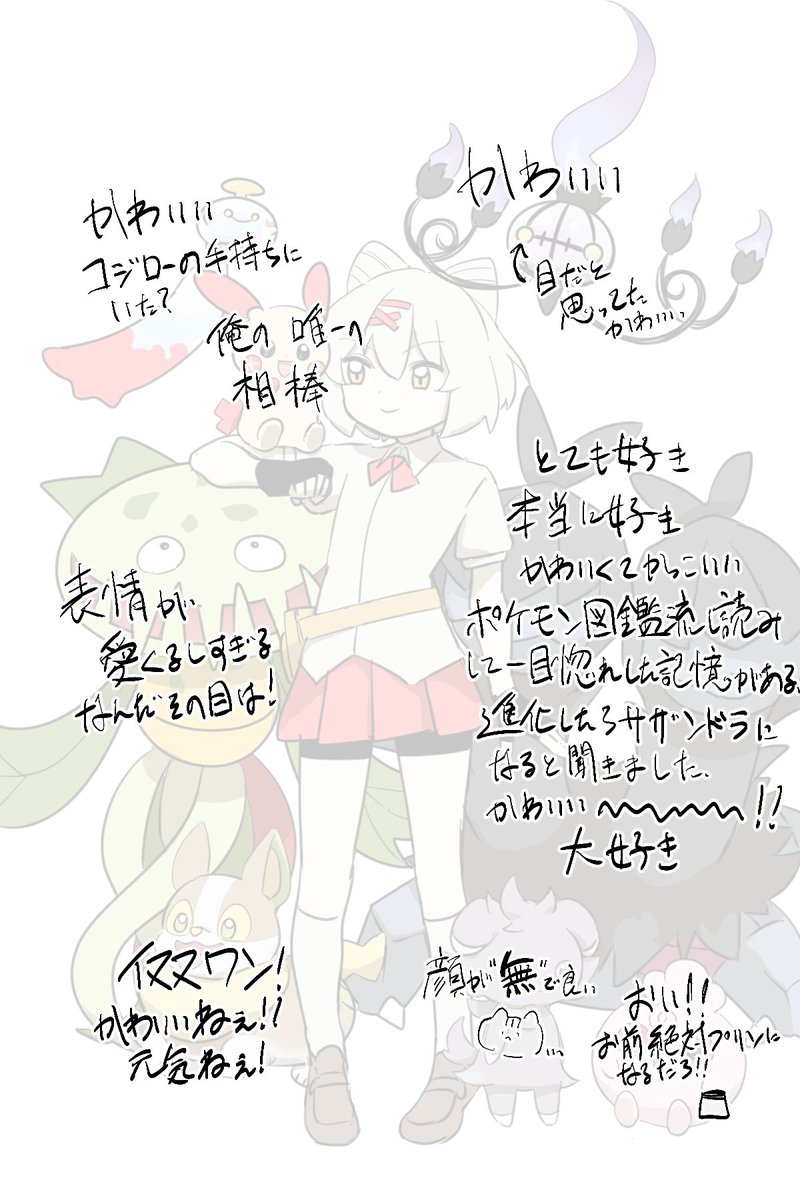 かわいい
コジローの手持ちに
いた?
かわいい
目だと
思ってた
かわいい
俺の 唯一の
相棒
とても好き
本当に好き
かわいくてかっこいい
ポケモン図鑑流し読み
して一目惚れした記憶がある、
進化したらサザンドラに
なると聞きました、
かわいい〜〜〜〜!!
大好き
表情が
愛くるしすぎる
なんだその目は!
イヌヌワン!
かわいいねぇ!!
元気ねぇ!
顔が"無"で良い
…
おい!!
お前絶対プリンに
なるだろ!!